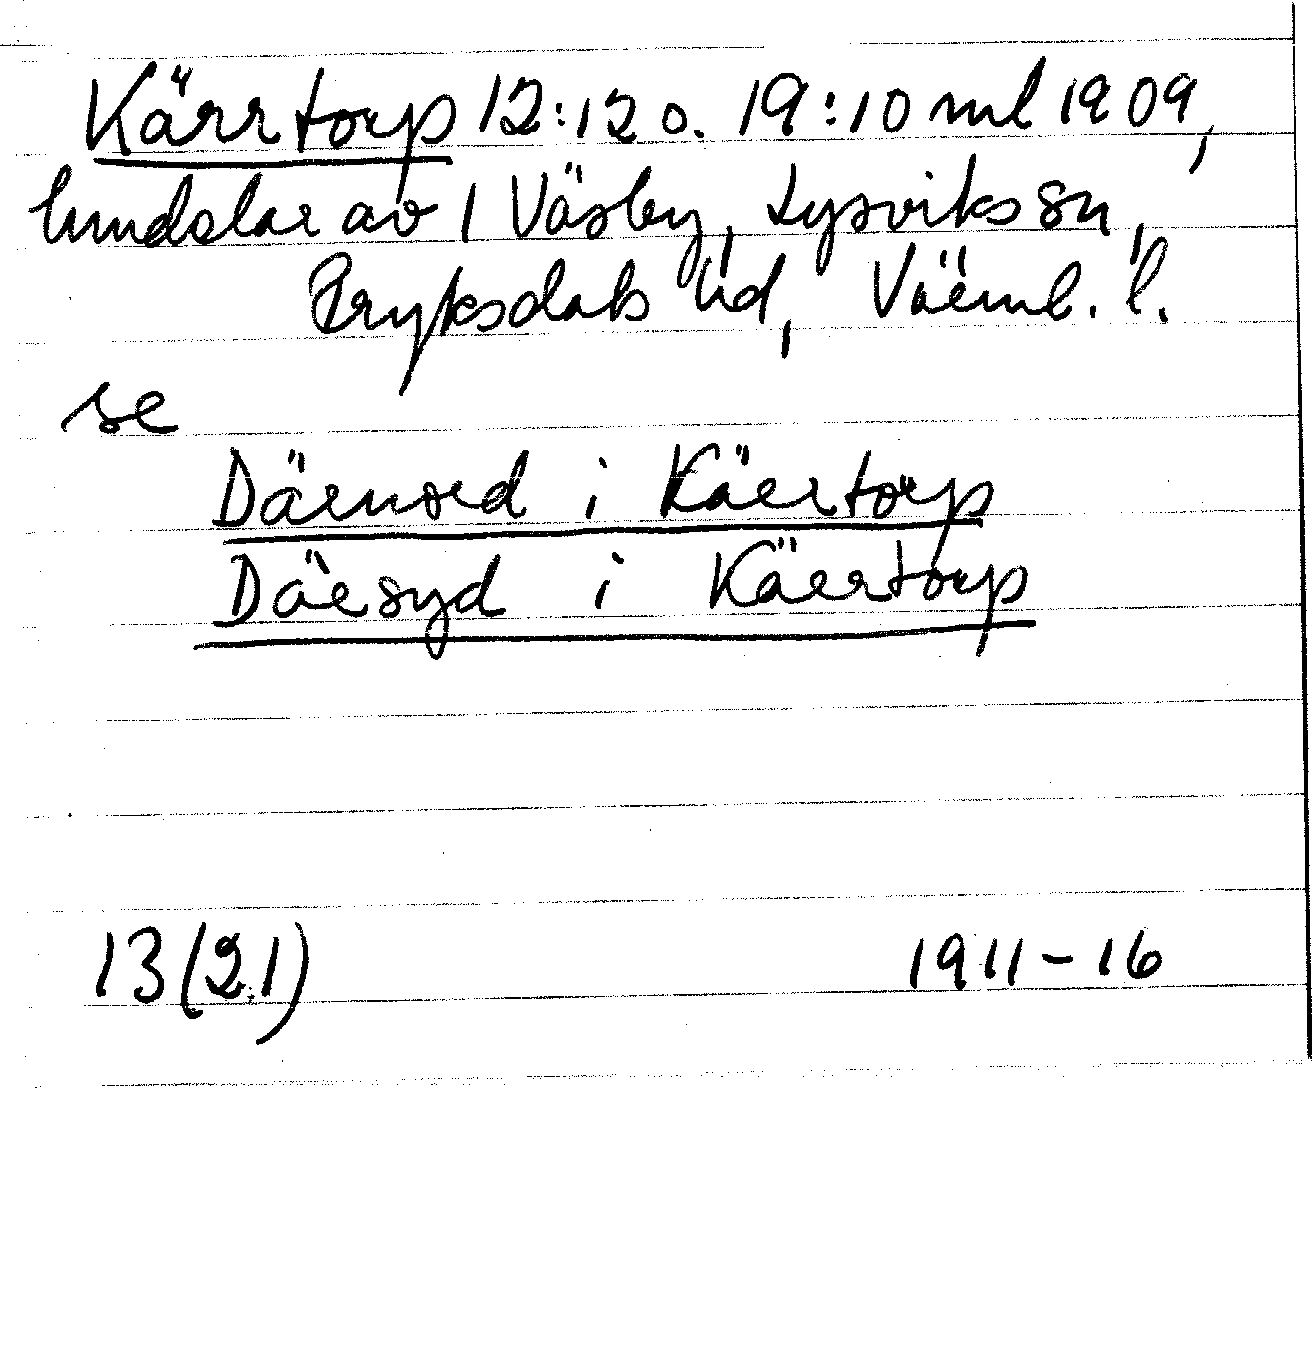 Kärrtorp 12:12 o. 19:10 ml 1909,
hundslar av 1 Väsby, Lysviks sn,
Fryksdals hd, Värml. l.
se
Därnord i Kärrtorp
Därsyd i Kärrtorp
13(21) 1911-16